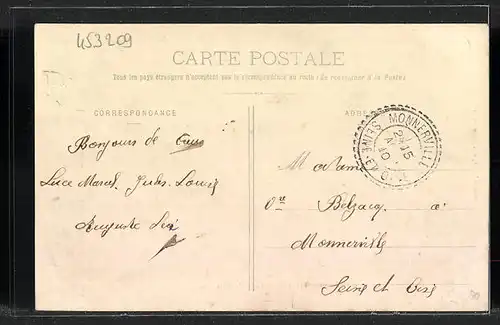 453209
CARTE POSTALE
Tous les pays étrangers n'acceptent pas la correspondance au recto (Se renseigner à la Poste)
CORRESPONDANCE
MONNERVILLE
SEINE-ET-OISE
Bonjours de Tous
Luce Marcel Jules Louis
Auguste
Madame
Vve Belzacq a
Monnerville
Seine et Oise